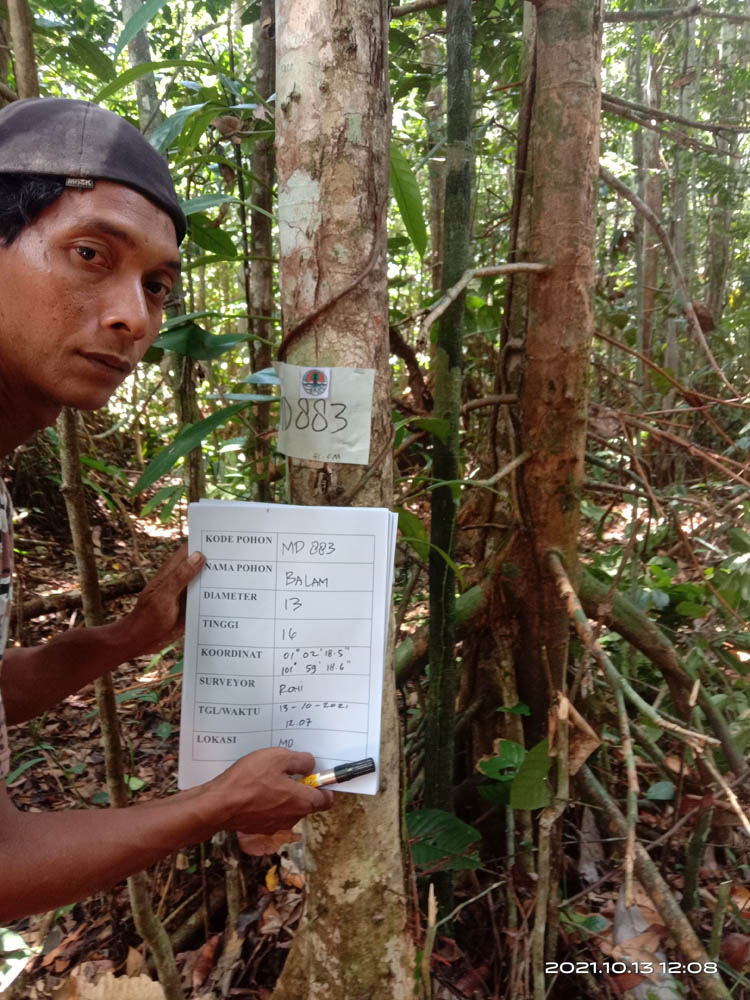 D883
41 CM
KODE POHON MD 883
NAMA POHON BALAM
DIAMETER 13
TINGGI 16
KOORDINAT 01° 02' 18.5"
101° 59' 18.6"
SURVEYOR ROHI
TGL/WAKTU 13-10-2021
12.07
LOKASI MD
2021.10.13 12:08